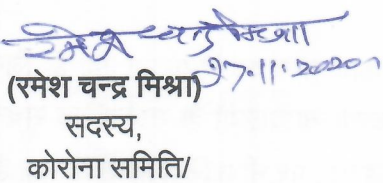 रमेश चन्द्र मिश्रा
27.11.2020
(रमेश चन्द्र मिश्रा)
सदस्य,
कोरोना समिति/